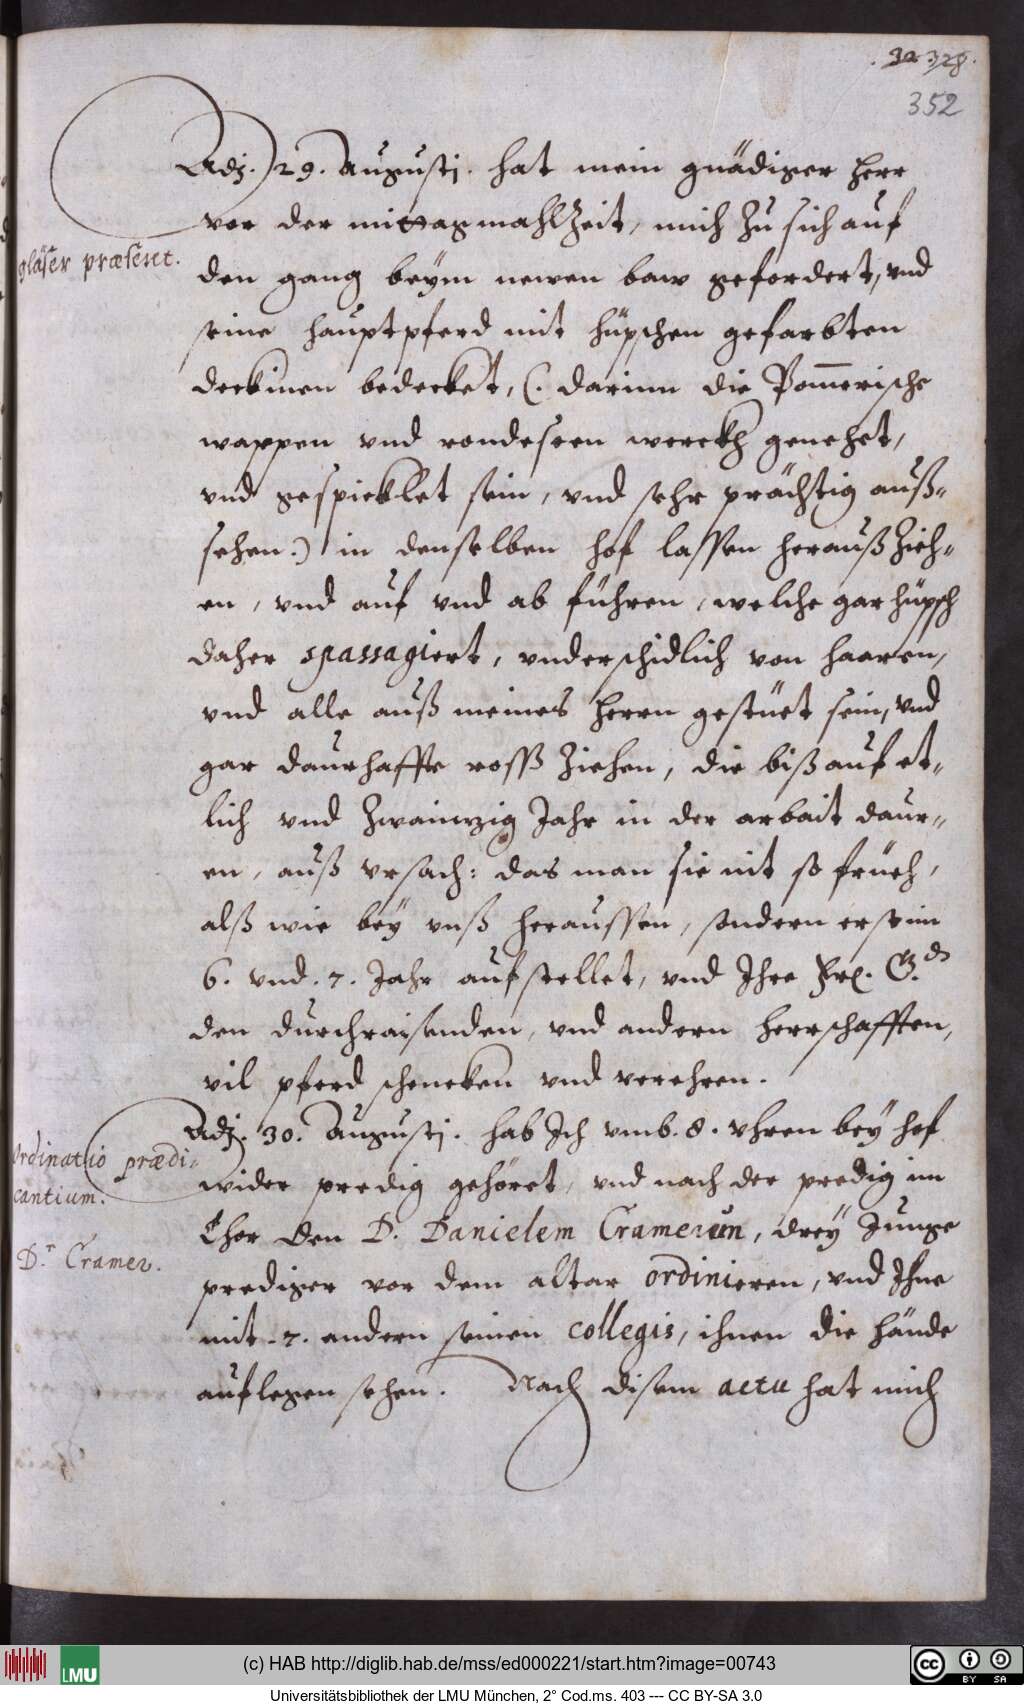 32 328.
352
Adj. 29. Augustj. hat mein gnädiger herr
vor der mittagmahlZeit, mich Zu sich auf
gläser præsent.
den gang beÿm newen baw gefordert, vnd
seine hauptpferd mit hüpschen gefarbten
deckinen bedecket, (. darinn die Pommerische
wappen vnd rondeseen werckh genehet,
vnd gespicklet sein, vnd sehr prächtig auß-
sehen.) in denselben hof lassen herauß Zieh-
en, vnd auf vnd ab führen, welche gar hüpsch
daher spassagiert, vnderschidlich von haaren,
vnd alle auß meines herrn gestüet sein, vnd
gar daurhaffte rosß Ziehen, die biß auf et-
lich vnd Zwainzig Jahr in der arbait daur-
en, auß vrsach: das man sie nit so früeh,
alß wie beÿ vnß heraussen, sondern erst im
6. vnd. 7. Jahr aufstellet, vnd Ihre Frl. G.dn
den durchraisenden, vnd andern herrschafften,
vil pferd schencken vnd verehren.
Adj. 30. Augustj. hab Ich vmb. 8. vhren beÿ hof
Ordinatio prædi-
cantium.
wider predig gehöret, vnd nach der predig im
Chor den D. Danielem Cramerum, dreÿ Junge
Dr. Cramer.
prediger vor dem altar ordinieren, vnd Ihne
mit. 7. andern seinen collegis, ihnen die hände
auflegen sehen. Nach disem actu hat mich
(c) HAB http://diglib.hab.de/mss/ed000221/start.htm?image=00743
LMU
Universitätsbibliothek der LMU München, 2° Cod.ms. 403 --- CC BY-SA 3.0
cc BY SA